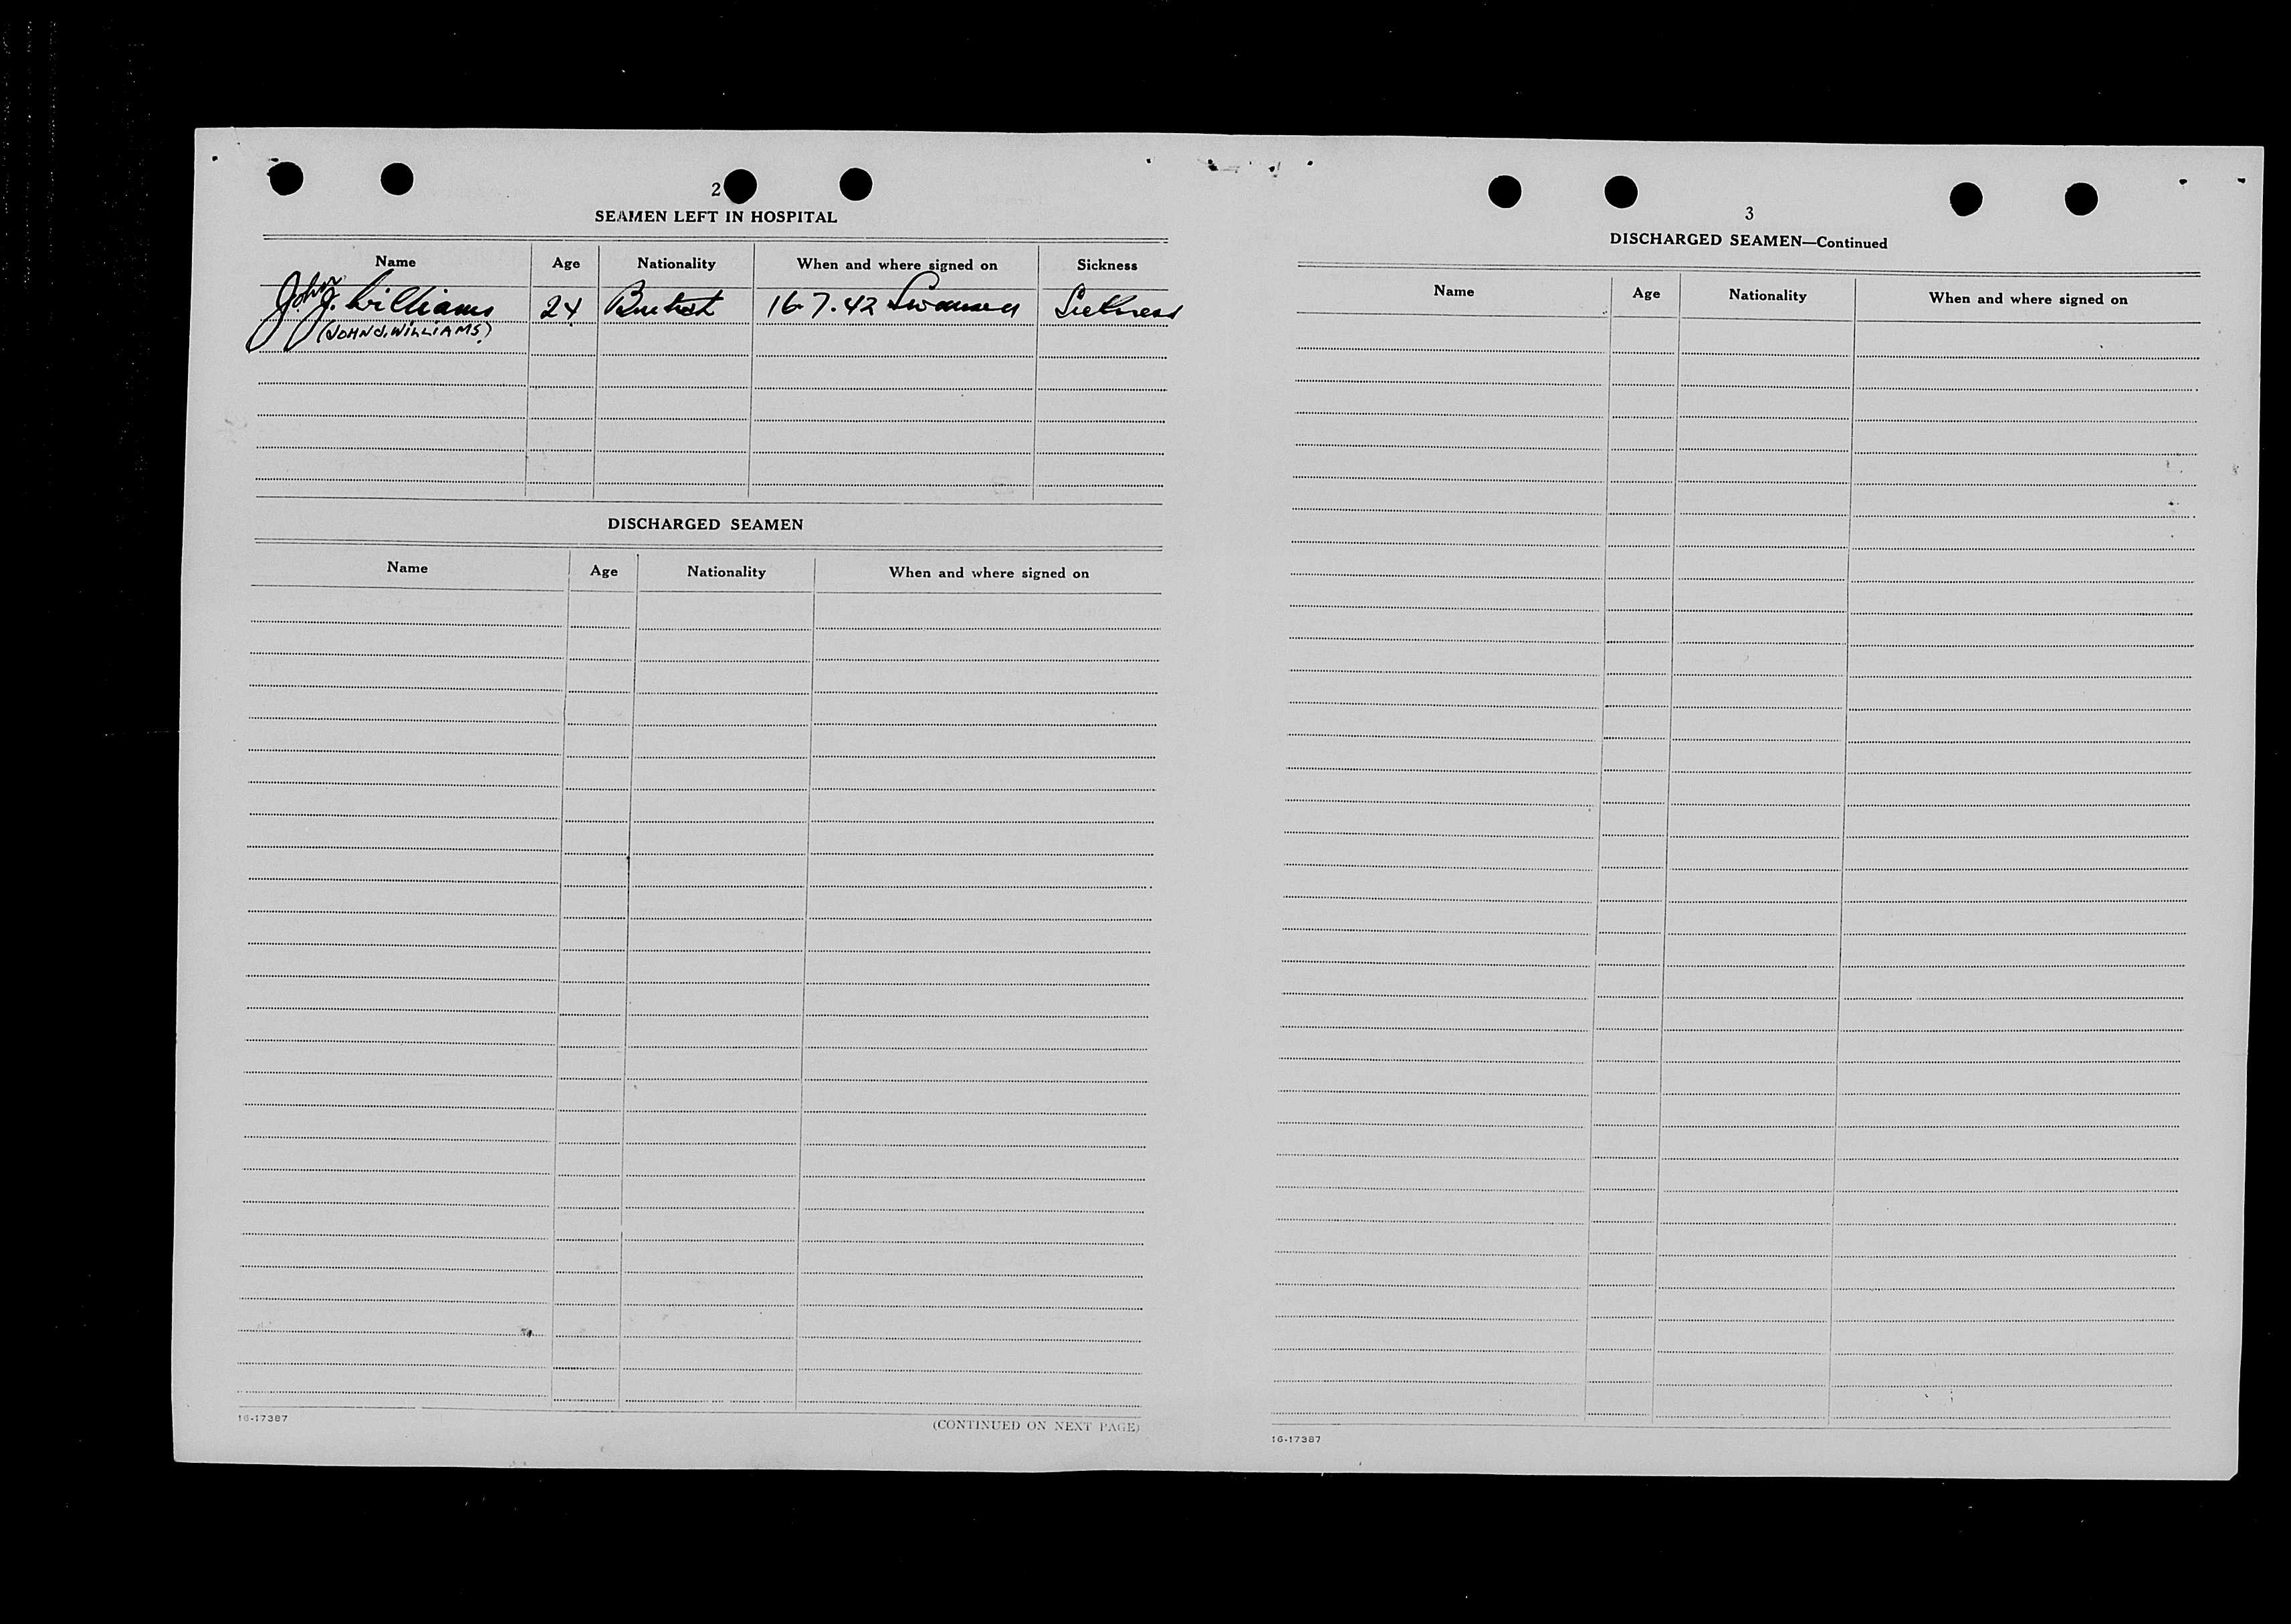 2
SEAMEN LEFT IN HOSPITAL
Name Age Nationality When and where signed on Sickness
John J. Williams 24 British 16.7.42 Swansea Sickness
(JOHN J. WILLIAMS)
DISCHARGED SEAMEN
Name Age Nationality When and where signed on
16-17387
(CONTINUED ON NEXT PAGE)
3
DISCHARGED SEAMEN—Continued
Name Age Nationality When and where signed on
16-17387